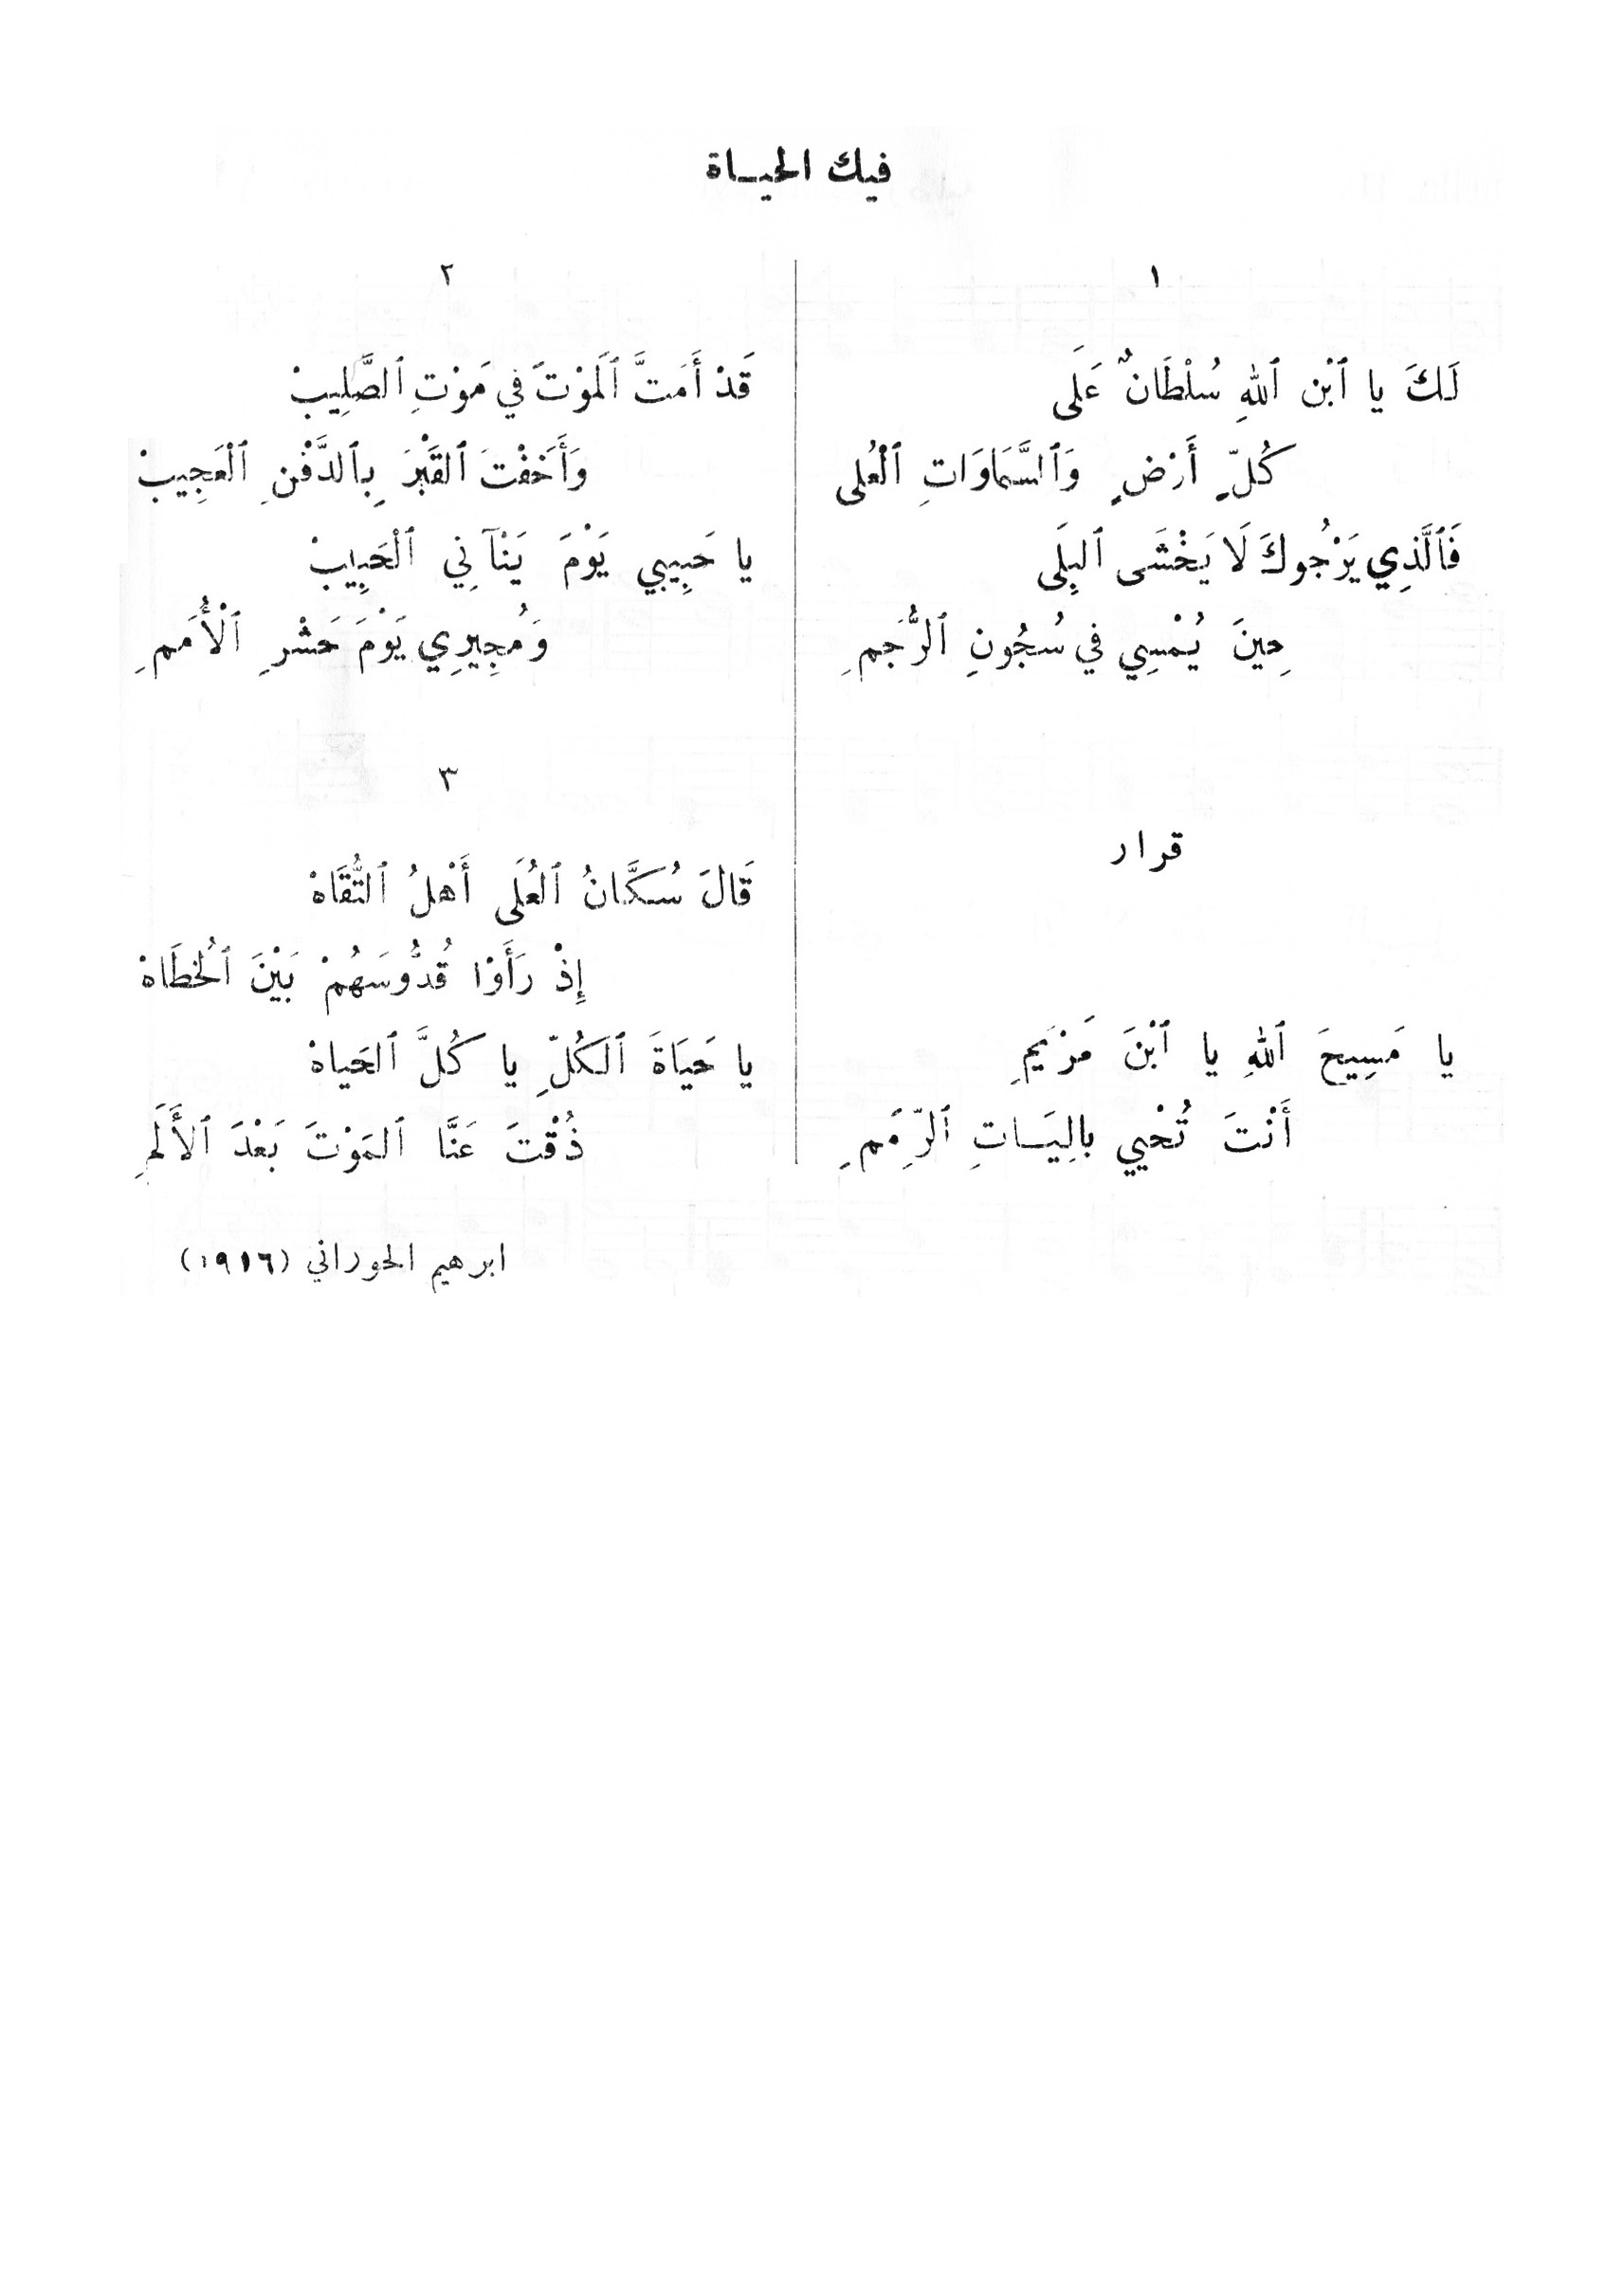 فيك الحيــاة
١
لَكَ يا ٱبْن ٱللهِ سُلْطَانٌ عَلَى
كُلِّ أَرْضٍ وَٱلسَّمَاوَاتِ ٱلْعُلى
فَٱلَّذِي يَرْجُوكَ لَا يَخْشَى ٱلبِلَى
حِينَ يُمْسِي في سُجُونِ ٱلرُّجَمِ
قرار
يا مَسِيحَ ٱللهِ يا ٱبْنَ مَرْيَمِ
أَنْتَ تُحْيِي بالِيَــاتِ ٱلرِّمَمِ
٢
قَدْ أَمَتَّ ٱلَمَوْتَ في مَوْتِ ٱلصَّلِيبْ
وَأَخَفْتَ ٱلقَبْرَ بِٱلدَّفْنِ ٱلْعَجِيبْ
يا حَبِيبِي يَوْمَ يَنْآنِي ٱلْحَبِيبْ
وَمُجِيرِي يَوْمَ حَشْرِ ٱلْأُمَمِ
٣
قَالَ سُكَّانُ ٱلعُلَى أَهْلُ ٱلتُّقَاهْ
إِذْ رَأَوْا قُدُّوسَهُمْ بَيْنَ ٱلْخُطَاهْ
يا حَيَاةَ ٱلكُلِّ يا كُلَّ ٱلحَياهْ
ذُقْتَ عَنَّا ٱلمَوْتَ بَعْدَ ٱلأَلَمِ
ابرهيم الحوراني (١٩١٦)